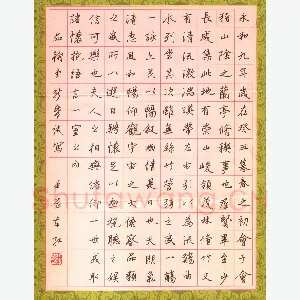 永和九年歲在癸丑暮春之初會于會
稽山陰之蘭亭修禊事也群賢畢至少
長咸集此地有崇山峻領茂林修竹又
有清流激湍暎帶左右引以為流觴曲
水列坐其次雖無絲竹管弦之盛一觴
一詠亦足以暢敘幽情是日也天朗氣
清惠風和暢仰觀宇宙之大俯察品類
之盛所以遊目騁懷足以極視聽之娛
信可樂也夫人之相與俯仰一世或取
諸懷抱悟言一室之內